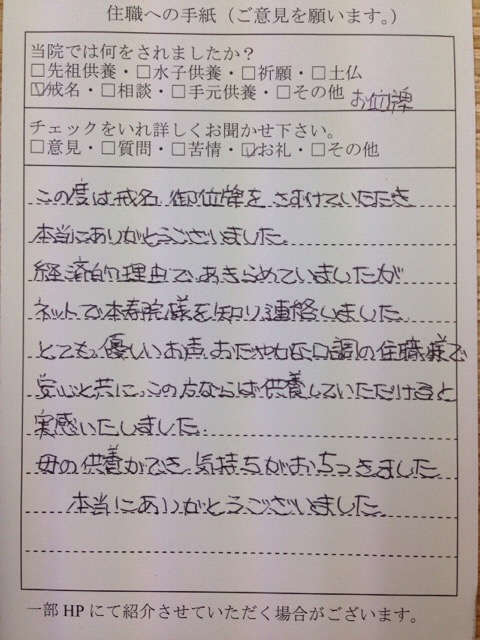 住職への手紙（ご意見を願います。）
当院では何をされましたか？
□先祖供養・□水子供養・□祈願・□土仏
☑戒名・□相談・□手元供養・□その他 お位牌
チェックをいれ詳しくお聞かせ下さい。
□意見・□質問・□苦情・☑お礼・□その他
この度は戒名、御位牌をさずけていただき
本当にありがとうございました。
経済的理由で、あきらめていましたが
ネットで本寿院様を知り連絡しました。
とても優しいお声、おだやかな口調の住職様で
安心と共に、この方ならば供養していただけると
実感いたしました。
母の供養ができ、気持ちがおちつきました。
本当にありがとうございました。
一部HPにて紹介させていただく場合がございます。